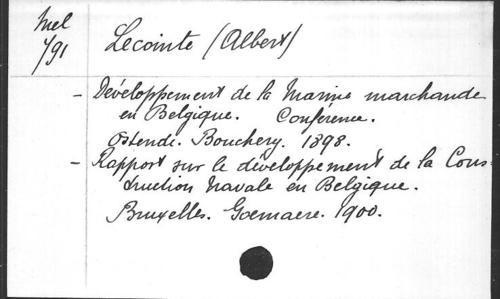 Mel
/91
Lecointe (Albert)
- Développement de la Marine marchande
en Belgique. Conférence.
Ostende. Bouchery. 1898.
- Rapport sur le développement de la Cons-
truction navale en Belgique.
Bruxelles. Goemaere. 1900.